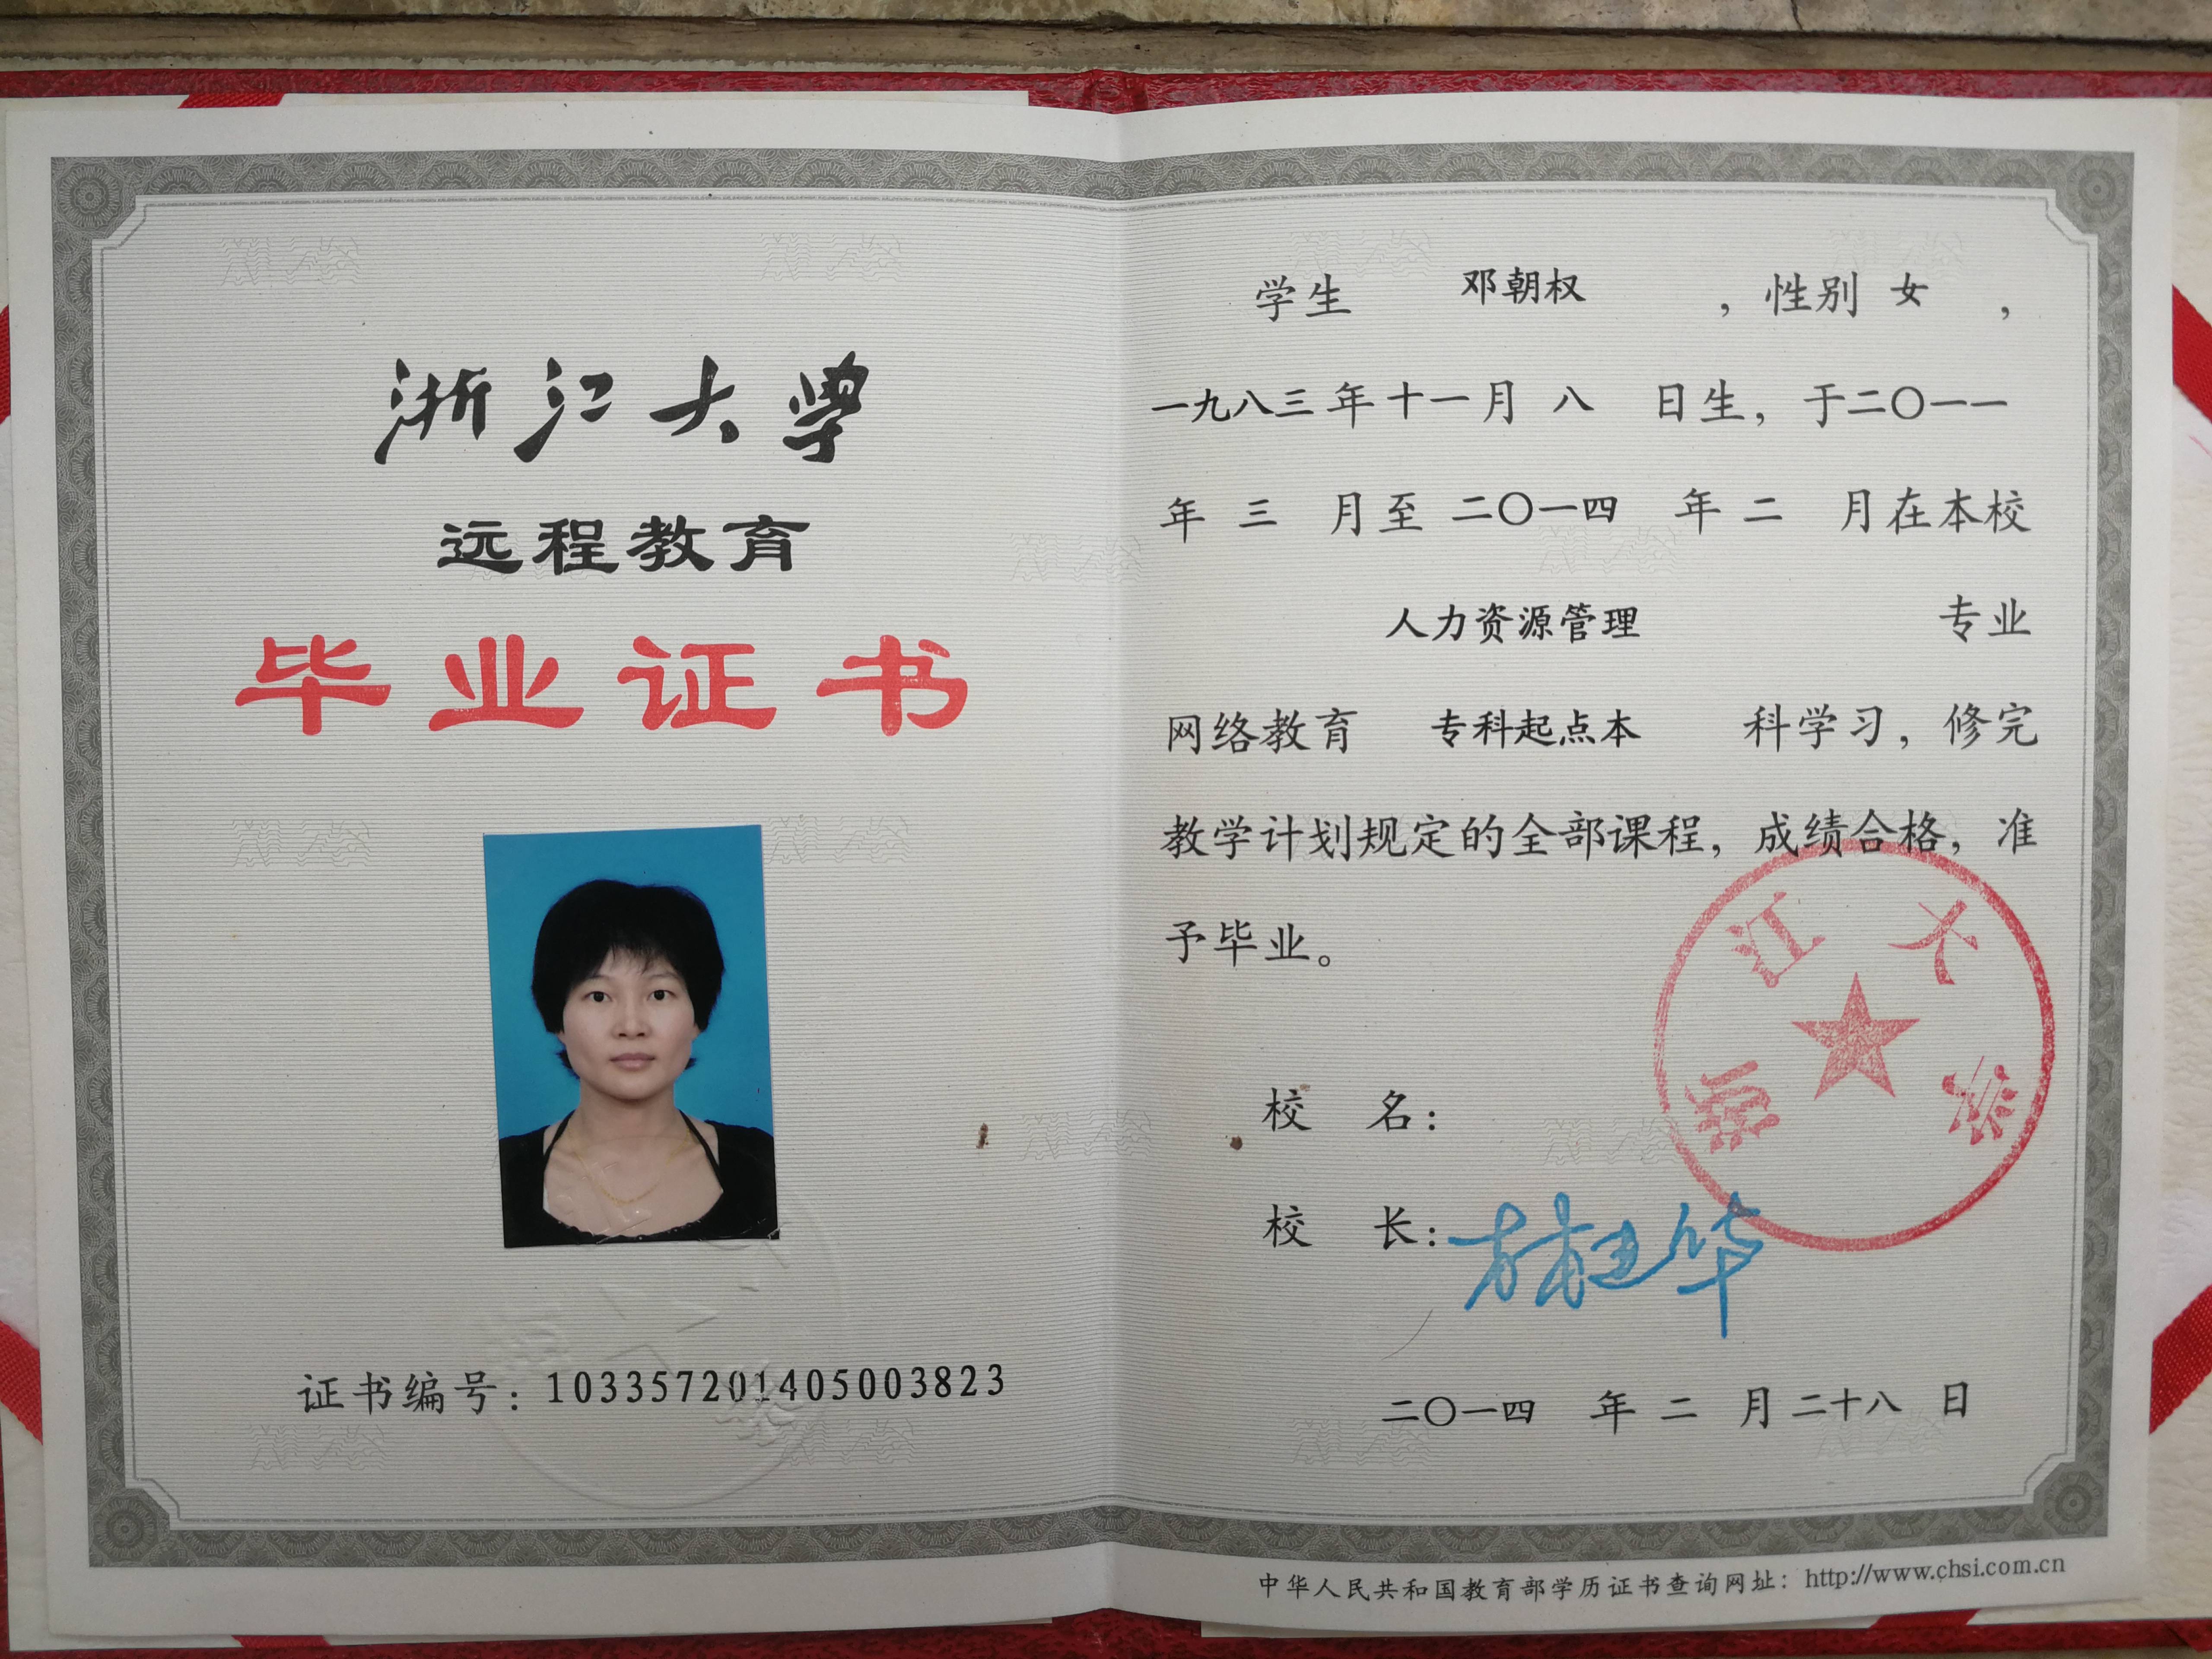 浙江大学
远程教育
毕业证书
证书编号：103357201405003823
学生 邓朝权 ，性别 女 ，
一九八三年十一月 八 日生，于二〇一一
年 三 月至 二〇一四 年 二 月在本校
人力资源管理 专业
网络教育 专科起点本 科学习，修完
教学计划规定的全部课程，成绩合格，准
予毕业。
浙江大学
校 名：
校 长：
二〇一四 年 二 月 二十八 日
中华人民共和国教育部学历证书查询网址：http://www.chsi.com.cn